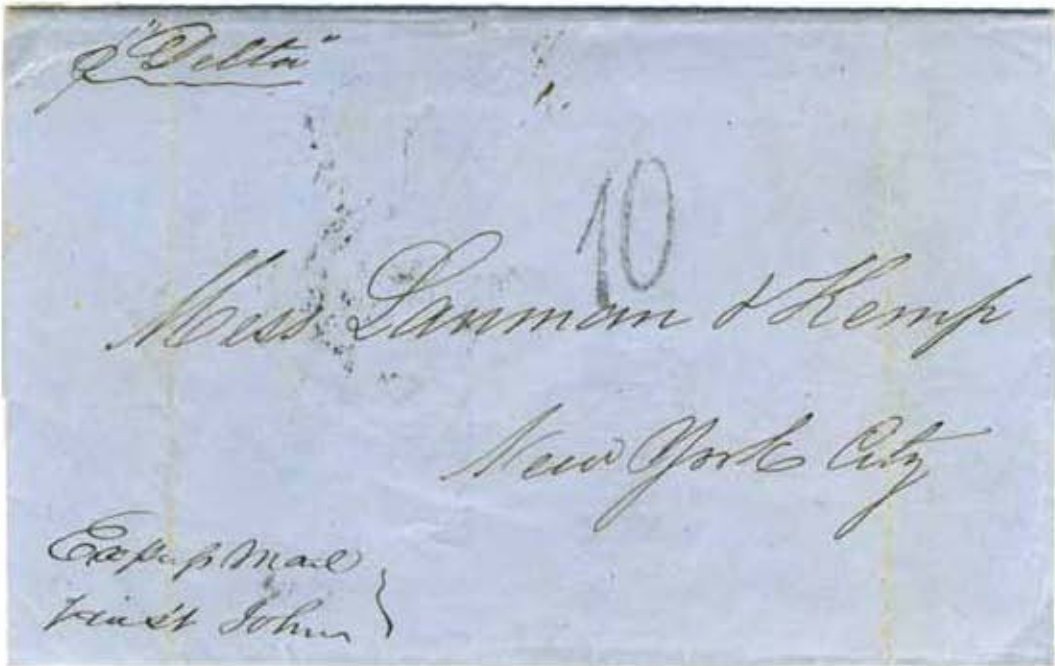 p "Delta"
10
Mess Lanman & Kemp
New York City
Mail
via St John